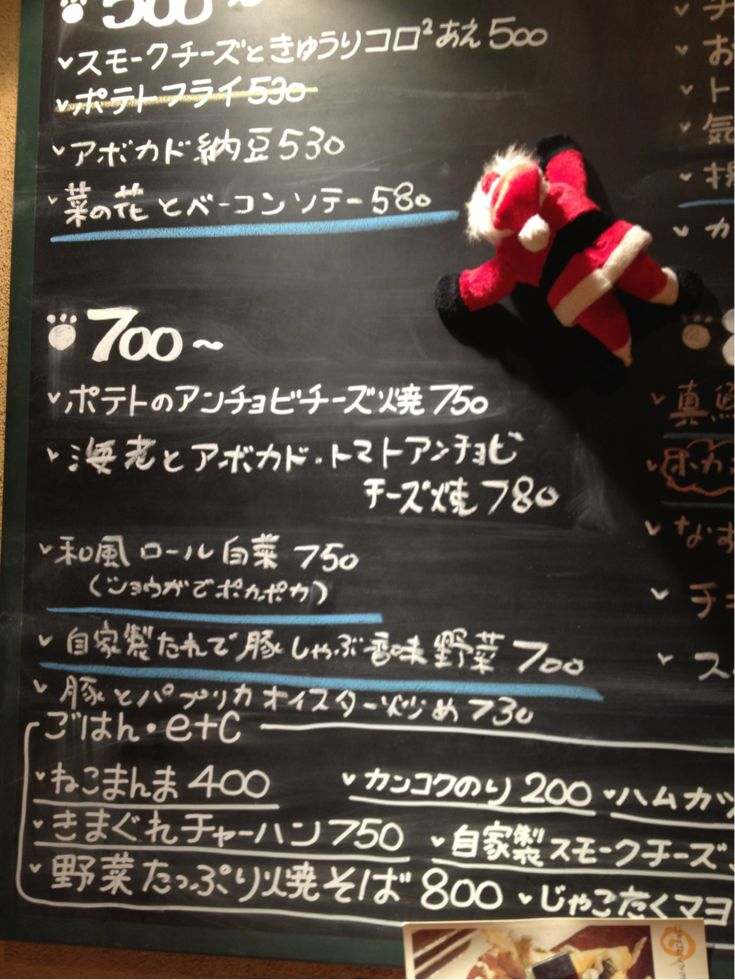 500~
スモークチーズときゅうりコロ²あえ 500
ポテトフライ 530
アボカド納豆 530
菜の花とベーコンソテー 580
700~
ポテトのアンチョビチーズ焼 750
海老とアボカド・トマトアンチョビ
チーズ焼 780
和風ロール白菜 750
(ショウガでポカポカ)
自家製たれで豚しゃぶ香味野菜 700
豚とパプリカオイスター炒め 730
ごはん・etc
ねこまんま 400
カンコクのり 200
ハムカツ
きまぐれチャーハン 750
自家製スモークチーズ
野菜たっぷり焼そば 800
じゃごたくマヨ
お
ト
気
カ
真鯛
ポカ
なす
チ
ス